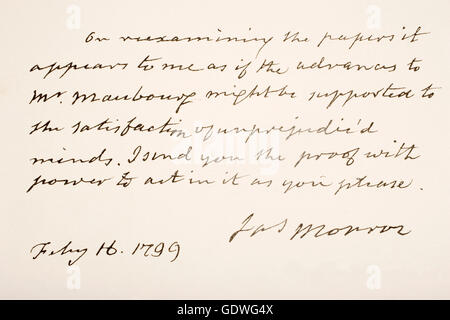 On reexamining the papers it
appears to me as if the advances to
Mr. Maubourg might be supported to
the satisfaction of unprejudic'd
minds. I send you the proof with
power to act in it as you please.
Jas Monroe
Feby 16. 1799
alamy stock photo
GDWG4X
www.alamy.com